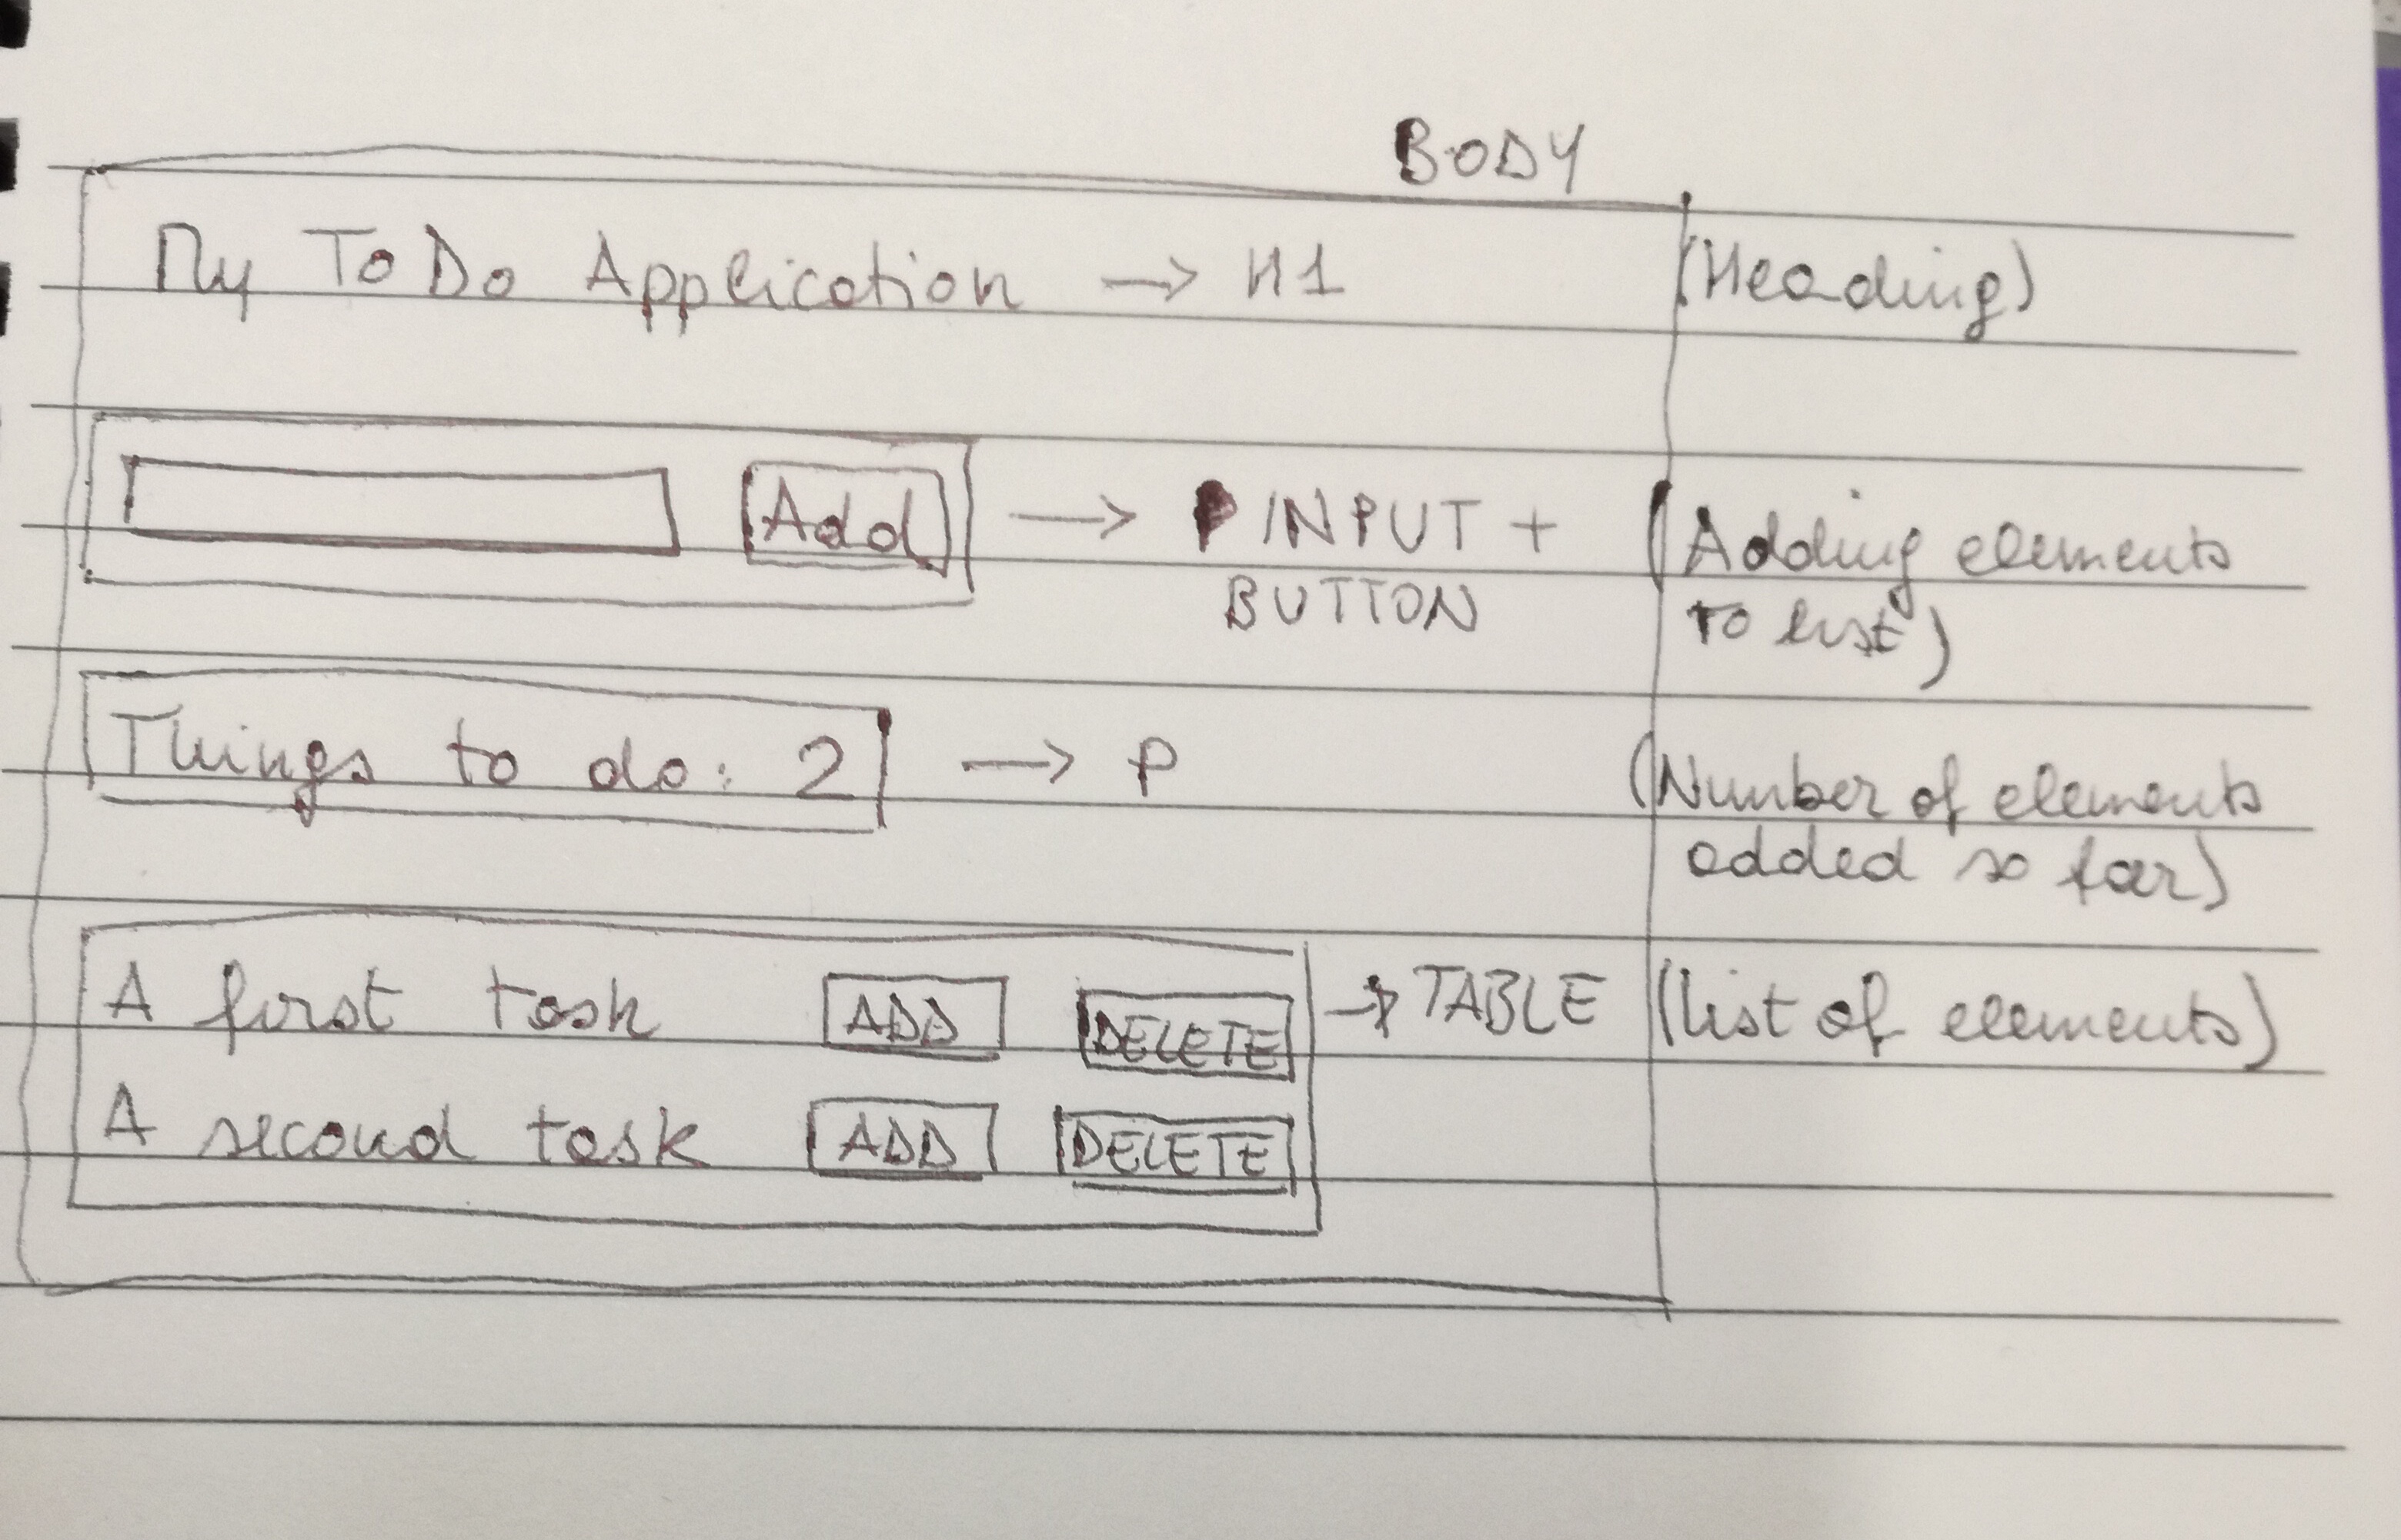 BODY
My ToDo Application → H1 (Heading)
Add → INPUT + (Adding elements
BUTTON to list)
Things to do: 2 → P (Number of elements
added so far)
A first task ADD DELETE → TABLE (list of elements)
A second task ADD DELETE